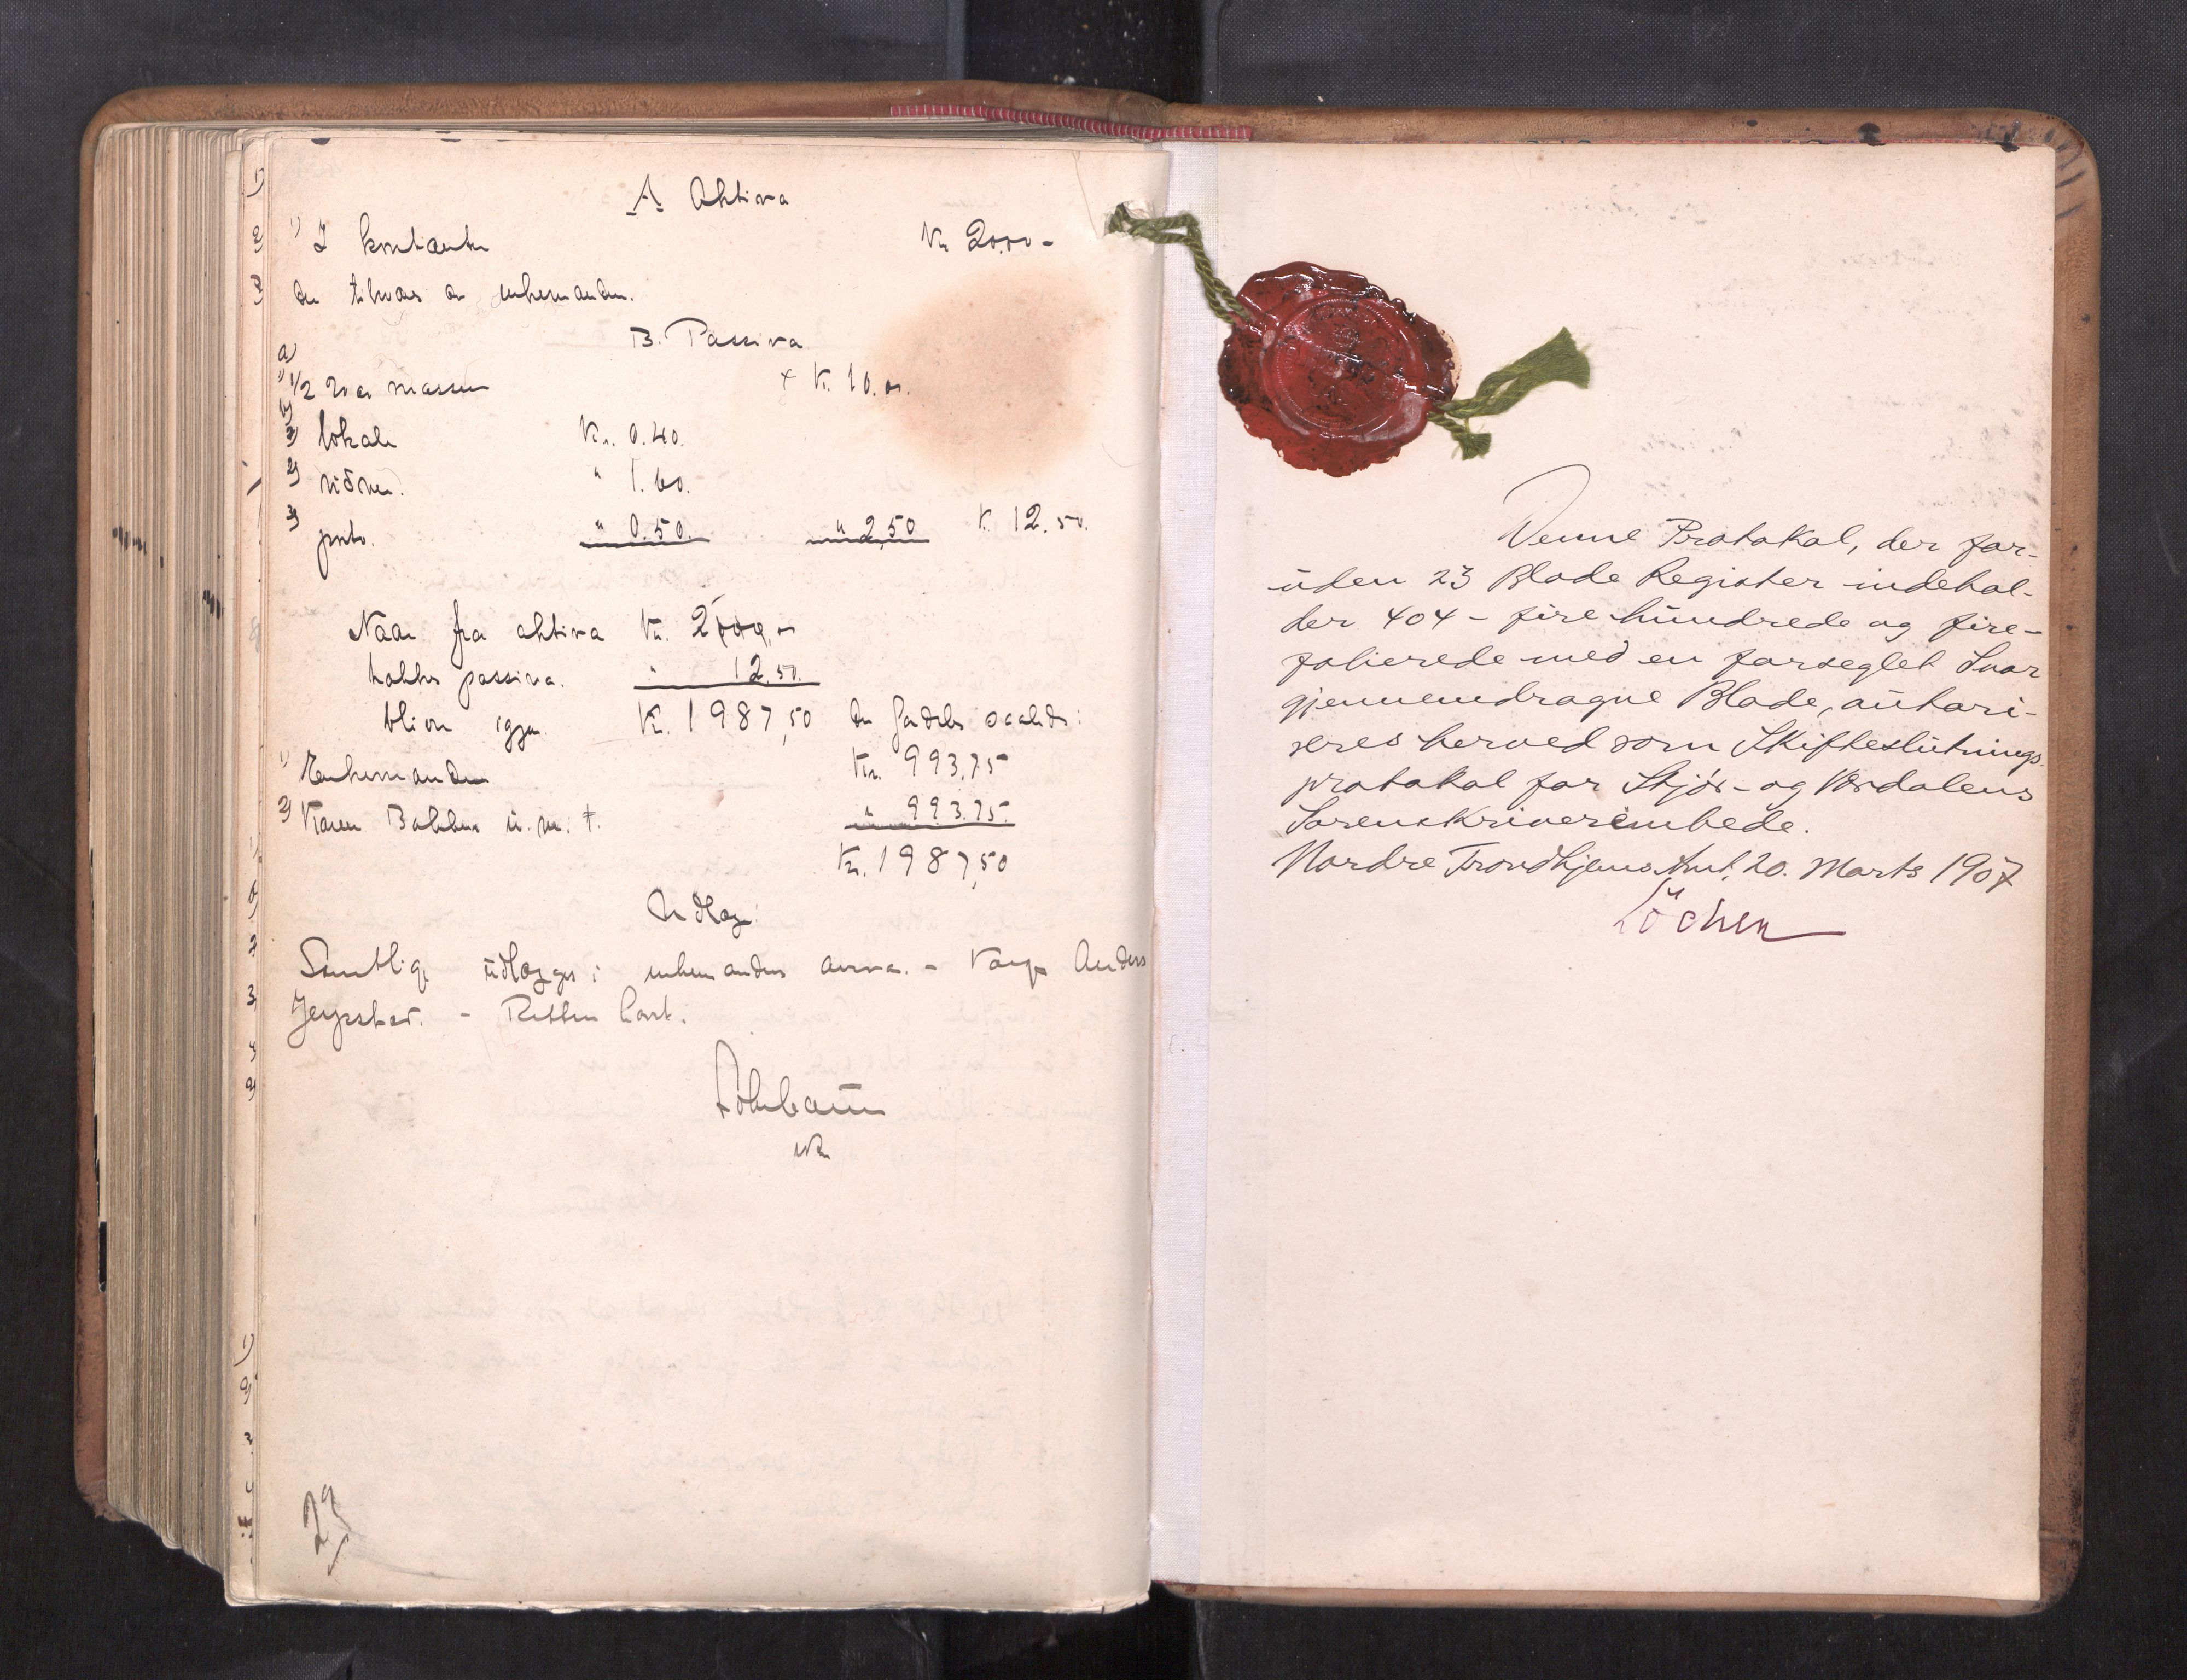 A Aktiva
1) I kontanter Kr 2000 -
der tilhører enkemanden.
B. Passiva
a)
1) 1/2 % av massen + Kr. 10.00.
b)
1) lokale Kr. 0.40.
2) vidner. " 1.60.
3) porto. " 0.50. " 2,50 Kr. 12.50.
Naar fra aktiva Kr. 2000,00
trækkes passiva. " 12.50.
bliver igjen Kr. 1987,50 der fordeles saaledes:
1) Enkemanden Kr. 993,75
2) Karen Bakken u. m: †. " 993.75.
Kr. 1987,50
Udlæg:
Samtlige udlægges i enkemandens navn. - Værge Anders
- Retten hævet.
29
Denne Protokol, der for-
uden 23 Blade Register indehol-
der 404 - fire hundrede og fire-
folierede med en forseglet Snor
gjennemdragne Blade, autori-
seres herved som Skifteslutnings-
protokol for Stjør- og Værdalens
Sorenskriverembede.
Nordre Trondhjems Amt, 20. Marts 1907
Löchen